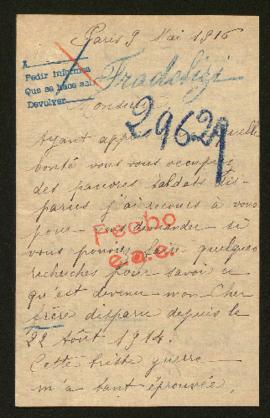 Paris 9 Mai 1916
A
Pedir Informes
Que se hace sab
Devolver
Tradolizi
Monsieur
29629
Ayant appris quelle
bonté vous vous occupez
des pauvres soldats dis-
parus j'ai recours à vous
pour vous demander si
vous pouviez faire quelques
recherches pour savoir ce
qu'est devenu mon Cher
frère disparu depuis le
22 Août 1914.
Cette triste guerre
m'a tant éprouvée
Fecho
e.a.e.